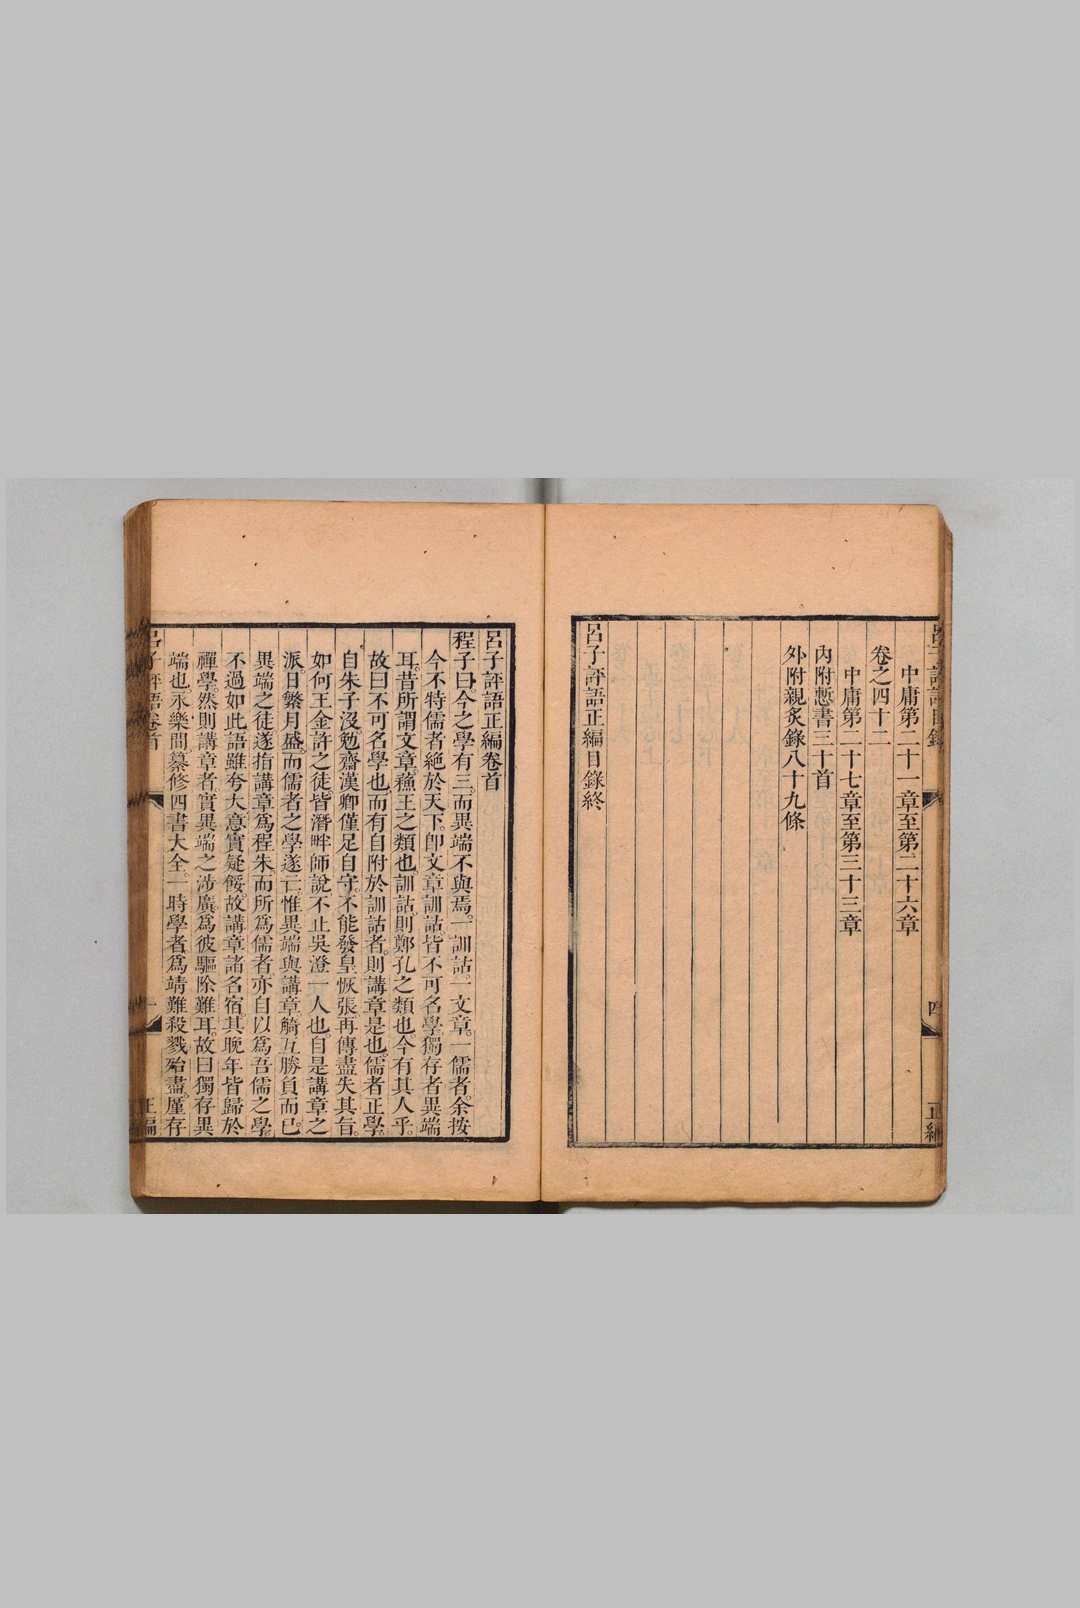 中庸第二十一章至第二十六章
卷之四十二
中庸第二十七章至第三十三章
內附慙書三十首
外附親炙錄八十九條
呂子評語正編目錄終
呂子評語正編卷首
程子曰。今之學有三。而異端不與焉。一訓詁。一文章。一儒者。余按
今不特儒者絶於天下。卽文章訓詁。皆不可名學。獨存者異端
耳。昔所謂文章。蘓王之類也。訓詁。則鄭孔之類也。今有其人乎。
故曰不可名學也。而有自附於訓詁者。則講章是也。儒者正學。
自朱子沒。勉齋漢卿僅足自守。不能發皇恢張。再傳盡失其旨。
如何王金許之徒。皆潛畔師說。不止吳澄一人也。自是講章之
派。日繁月盛。而儒者之學遂亡。惟異端與講章觭互勝負而已。
異端之徒遂指講章爲程朱。而所爲儒者。亦自以爲吾儒之學。
不過如此。語雖夸大。意實疑餒。故講章諸名宿。其晚年皆歸於
禪學。然則講章者。實異端之涉廣。爲彼驅除難耳。故曰獨存異
端也。永樂間纂修四書大全。一時學者爲靖難殺戮殆盡。厪存
呂子評語卷首
一
正編
呂子評語目錄
四
正編